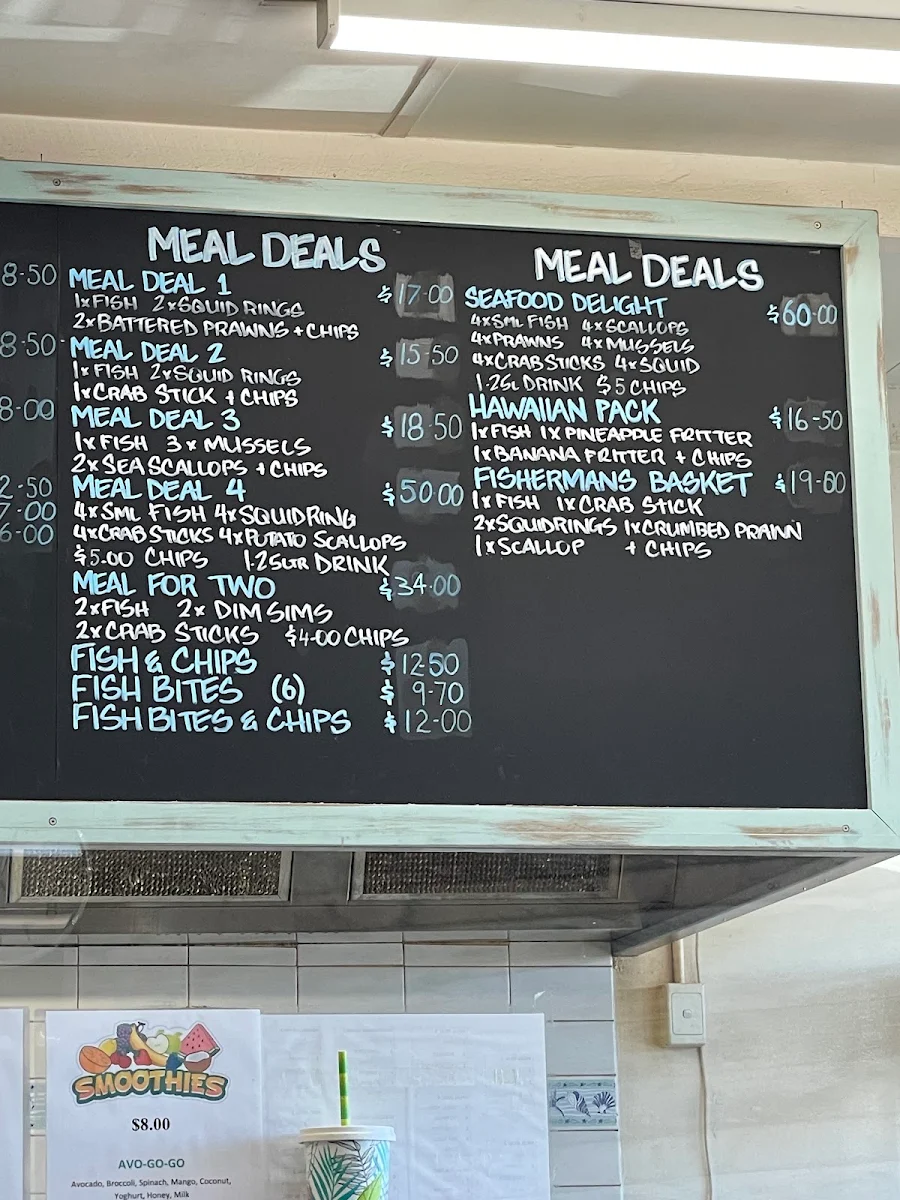 8-50
8-50
8-00
2-50
7-00
6-00
MEAL DEALS
MEAL DEAL 1 $17-00
1xFISH 2xSQUID RINGS
2xBATTERED PRAWNS + CHIPS
MEAL DEAL 2 $15-50
1xFISH 2xSQUID RINGS
1xCRAB STICK + CHIPS
MEAL DEAL 3 $18-50
1xFISH 3xMUSSELS
2xSEA SCALLOPS + CHIPS
MEAL DEAL 4 $50-00
4xSML FISH 4xSQUID RING
4xCRAB STICKS 4xPOTATO SCALLOPS
$5.00 CHIPS 1.25LTR DRINK
MEAL FOR TWO $34-00
2xFISH 2x DIM SIMS
2xCRAB STICKS $4-00 CHIPS
FISH & CHIPS $12-50
FISH BITES (6) $9-70
FISH BITES & CHIPS $12-00
MEAL DEALS
SEAFOOD DELIGHT $60-00
4xSML FISH 4xSCALLOPS
4xPRAWNS 4xMUSSELS
4xCRAB STICKS 4xSQUID
1.25L DRINK $5 CHIPS
HAWAIIAN PACK $16-50
1xFISH 1xPINEAPPLE FRITTER
1xBANANA FRITTER + CHIPS
FISHERMANS BASKET $19-60
1xFISH 1xCRAB STICK
2xSQUIDRINGS 1xCRUMBED PRAWN
1xSCALLOP + CHIPS
SMOOTHIES
$8.00
AVO-GO-GO
Avocado, Broccoli, Spinach, Mango, Coconut,
Yoghurt, Honey, Milk